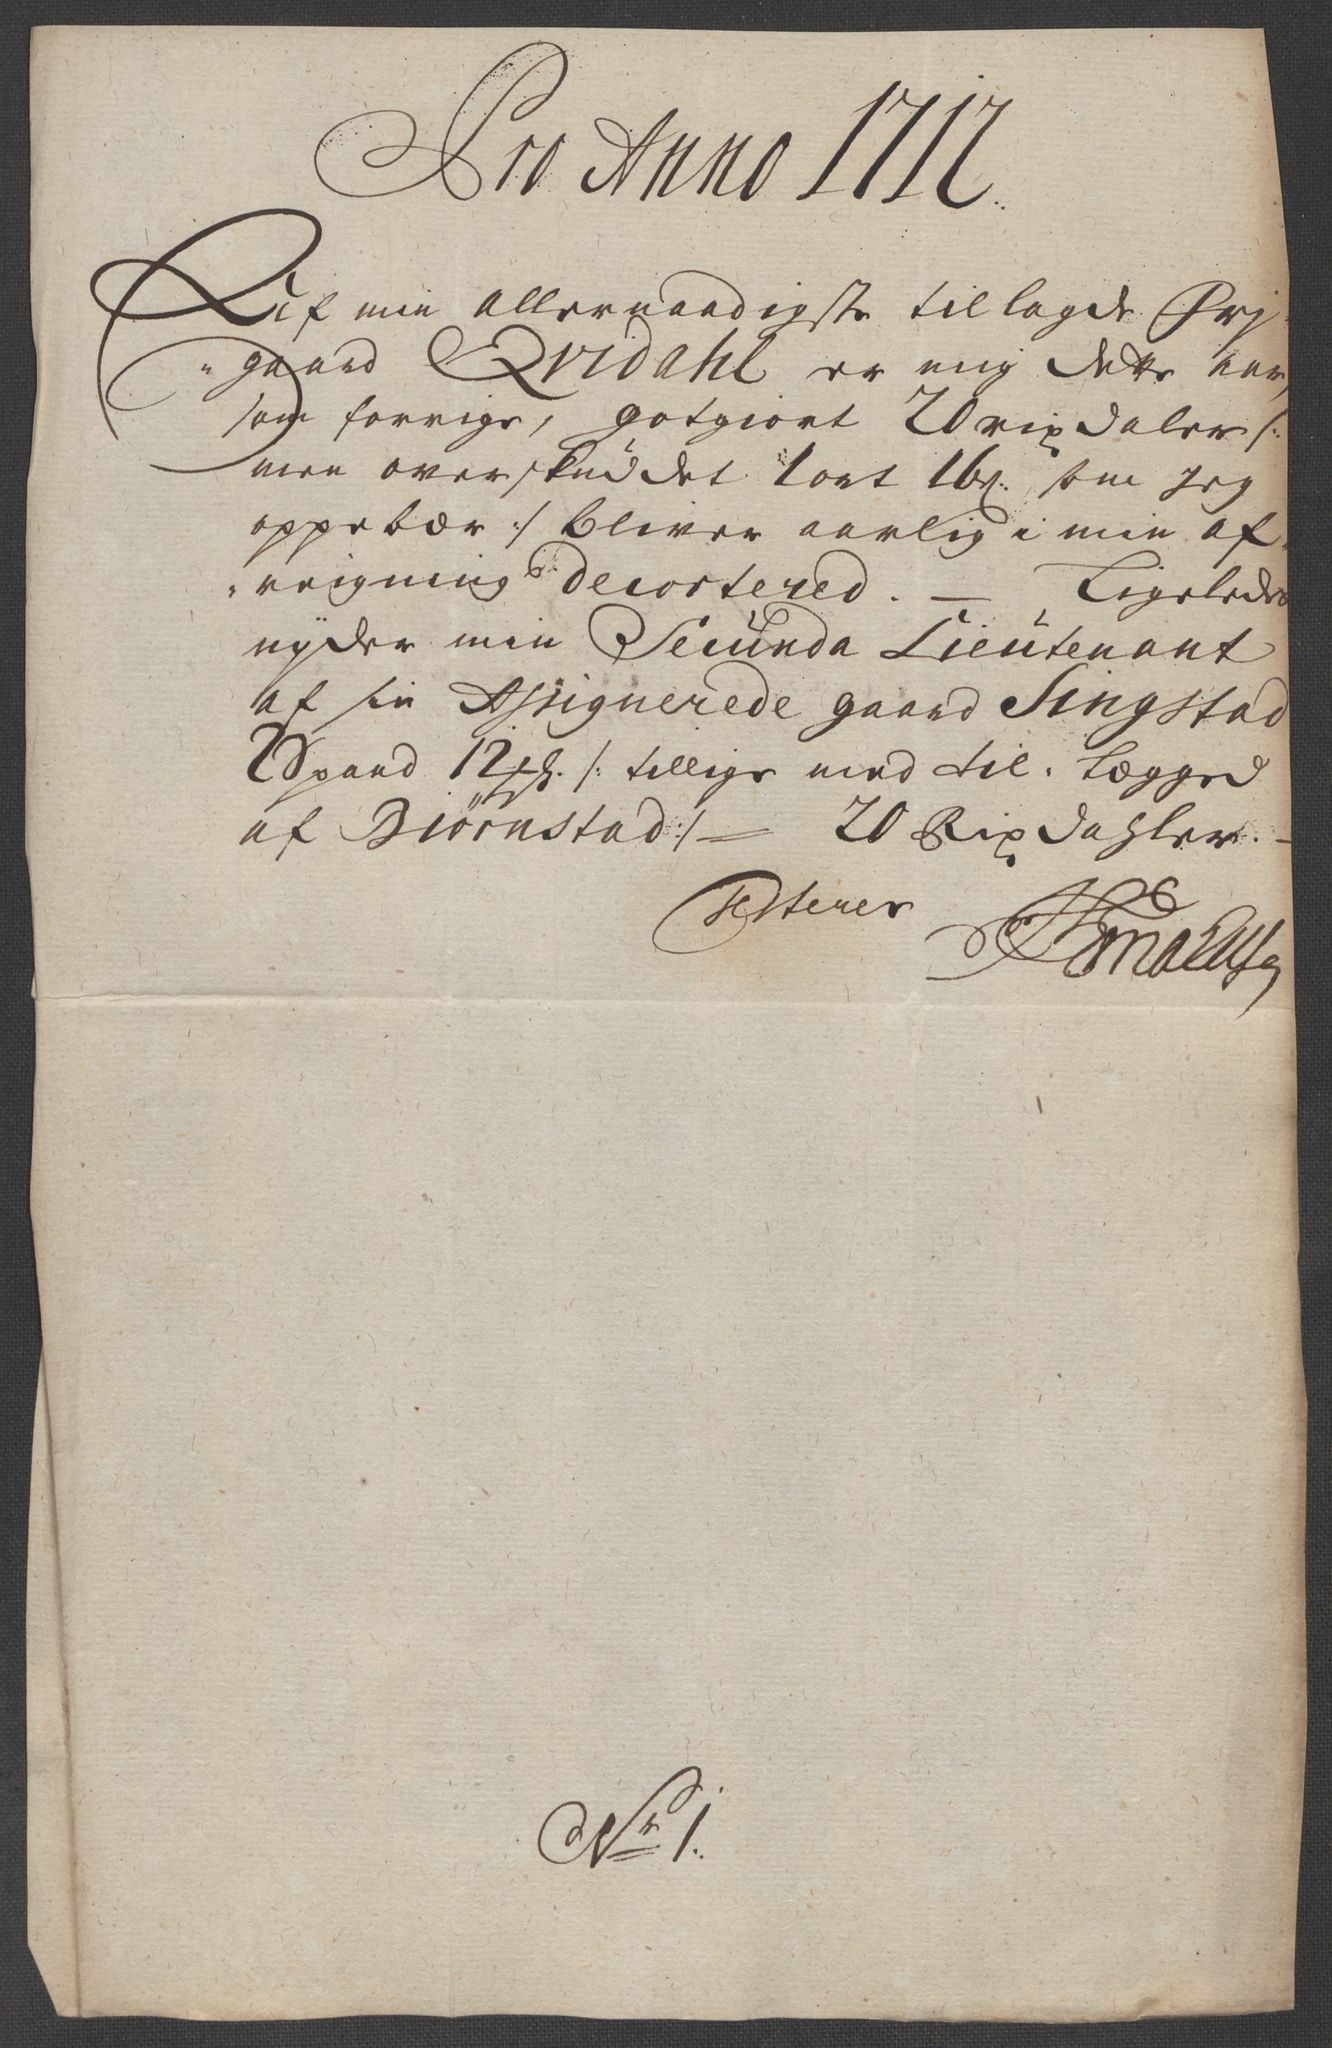 Pro Anno 1717.
Aif min allernaadigste tillagde Frj„
„gaard Qvidahl er mig dette aar,
som forrige, gotgiort 20 rixdaler /:
men overskuddet 1 ort 16 s. som jeg
oppebær :/ bliver aarlig i min af„
„reigning decortered. — Ligeledes
nyder min Secunda Lieutenant
af sin Assignerede gaard Singstad
2 Spand 12 /: tillige med til lægged
af Biörnstad :/ — 20 Rixdahler. —
Testerer
Nr 1.